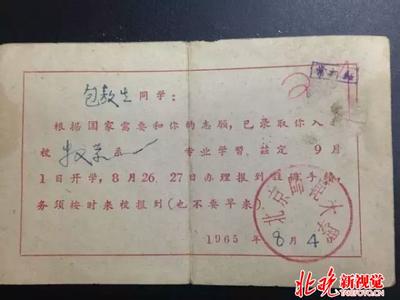 包教生同学:
根据国家需要和你的志愿,已录取你入
校 教育系一 专业学習。兹定 9月
1日开学,8月26、27日办理报到註册手續,
务须按时来校报到(也不要早来)。
1965 年 8 月 4
北京师范大学
北晚新视觉
TAKEFOTO.CN